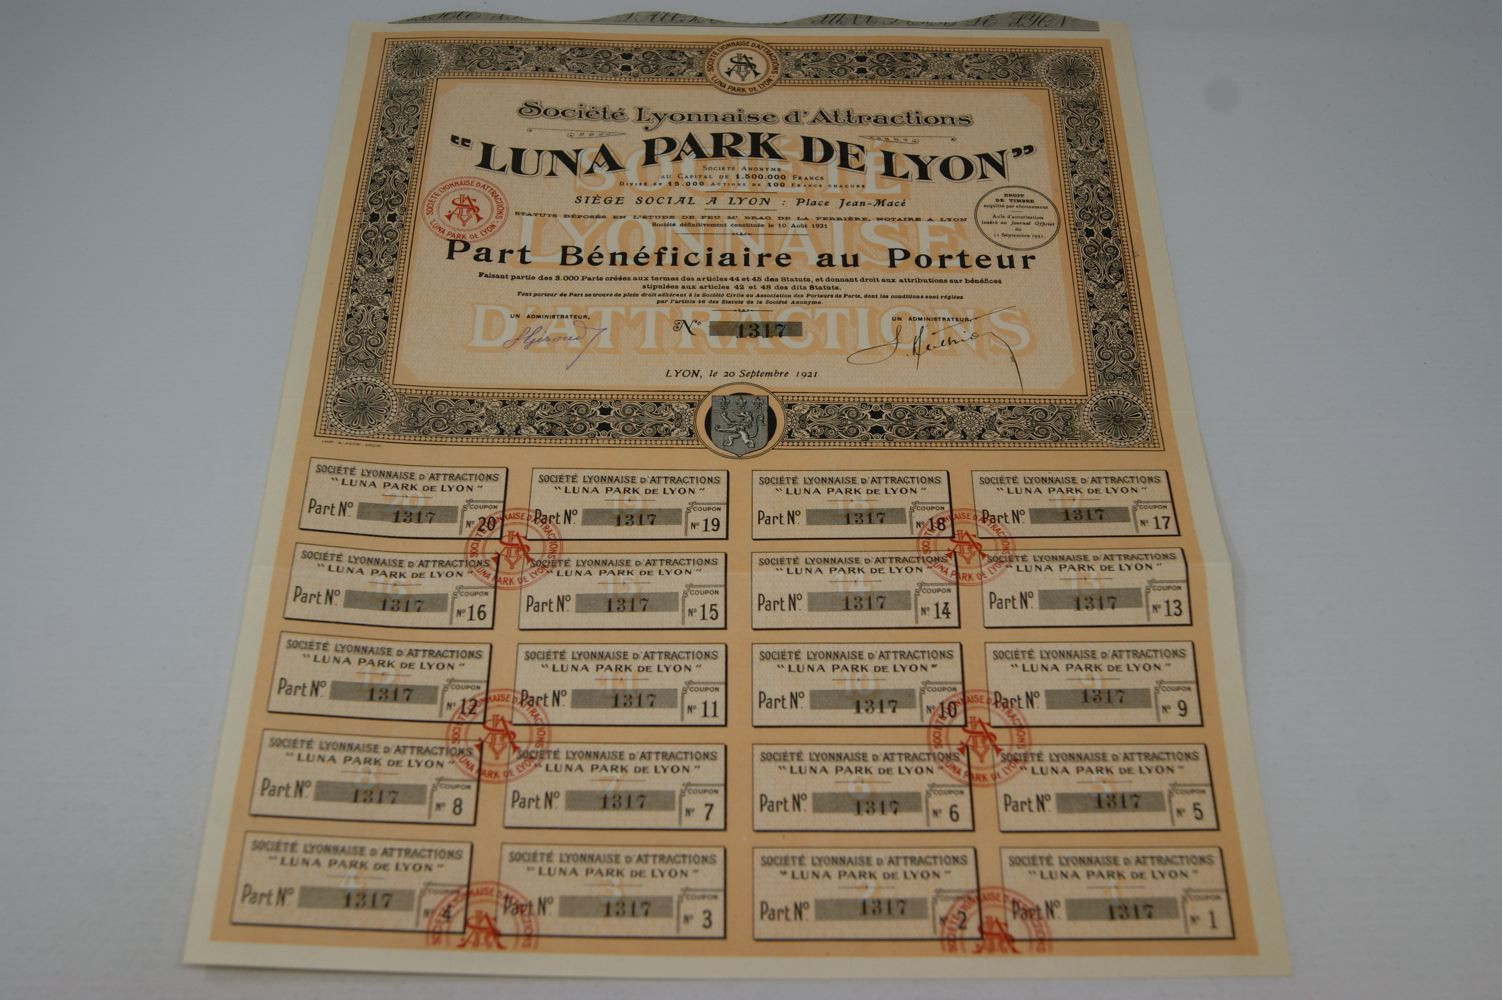 SOCIÉTÉ LYONNAISE D'ATTRACTIONS
LUNA PARK DE LYON
Société Lyonnaise d'Attractions
"LUNA PARK DE LYON"
SOCIÉTÉ ANONYME
AU CAPITAL DE 1.500.000 FRANCS
DIVISÉ EN 15.000 ACTIONS DE 100 FRANCS CHACUNE
SIÈGE SOCIAL A LYON : Place Jean-Macé
STATUTS DÉPOSÉS EN L'ÉTUDE DE FEU Me BRAC DE LA PERRIÈRE, NOTAIRE A LYON
Société définitivement constituée le 10 Août 1921
SOCIÉTÉ LYONNAISE D'ATTRACTIONS
LUNA PARK DE LYON
DROIT
DE TIMBRE
acquitté par abonnement
Avis d'autorisation
inséré au Journal Officiel
du
11 Septembre 1921.
SOCIÉTÉ
LYONNAISE
D'ATTRACTIONS
Part Bénéficiaire au Porteur
Faisant partie des 3.000 Parts créées aux termes des articles 44 et 45 des Statuts, et donnant droit aux attributions sur bénéfices
stipulées aux articles 42 et 48 des dits Statuts.
Tout porteur de Part se trouve de plein droit adhérent à la Société Civile ou Association des Porteurs de Parts, dont les conditions sont réglées
par l'article 46 des Statuts de la Société Anonyme.
UN ADMINISTRATEUR,
No 1317
UN ADMINISTRATEUR,
LYON, le 20 Septembre 1921
SOCIÉTÉ LYONNAISE D'ATTRACTIONS
"LUNA PARK DE LYON"
Part No. 1317 COUPON No 20
SOCIÉTÉ LYONNAISE D'ATTRACTIONS
"LUNA PARK DE LYON"
Part No. 1317 COUPON No 19
SOCIÉTÉ LYONNAISE D'ATTRACTIONS
"LUNA PARK DE LYON"
Part No. 1317 COUPON No 18
SOCIÉTÉ LYONNAISE D'ATTRACTIONS
"LUNA PARK DE LYON"
Part No. 1317 COUPON No 17
SOCIÉTÉ LYONNAISE D'ATTRACTIONS
"LUNA PARK DE LYON"
Part No. 1317 COUPON No 16
SOCIÉTÉ LYONNAISE D'ATTRACTIONS
"LUNA PARK DE LYON"
Part No. 1317 COUPON No 15
SOCIÉTÉ LYONNAISE D'ATTRACTIONS
"LUNA PARK DE LYON"
Part No. 1317 COUPON No 14
SOCIÉTÉ LYONNAISE D'ATTRACTIONS
"LUNA PARK DE LYON"
Part No. 1317 COUPON No 13
SOCIÉTÉ LYONNAISE D'ATTRACTIONS
"LUNA PARK DE LYON"
Part No. 1317 COUPON No 12
SOCIÉTÉ LYONNAISE D'ATTRACTIONS
"LUNA PARK DE LYON"
Part No. 1317 COUPON No 11
SOCIÉTÉ LYONNAISE D'ATTRACTIONS
"LUNA PARK DE LYON"
Part No. 1317 COUPON No 10
SOCIÉTÉ LYONNAISE D'ATTRACTIONS
"LUNA PARK DE LYON"
Part No. 1317 COUPON No 9
SOCIÉTÉ LYONNAISE D'ATTRACTIONS
"LUNA PARK DE LYON"
Part No. 1317 COUPON No 8
SOCIÉTÉ LYONNAISE D'ATTRACTIONS
"LUNA PARK DE LYON"
Part No. 1317 COUPON No 7
SOCIÉTÉ LYONNAISE D'ATTRACTIONS
"LUNA PARK DE LYON"
Part No. 1317 COUPON No 6
SOCIÉTÉ LYONNAISE D'ATTRACTIONS
"LUNA PARK DE LYON"
Part No. 1317 COUPON No 5
SOCIÉTÉ LYONNAISE D'ATTRACTIONS
"LUNA PARK DE LYON"
Part No. 1317 COUPON No 4
SOCIÉTÉ LYONNAISE D'ATTRACTIONS
"LUNA PARK DE LYON"
Part No. 1317 COUPON No 3
SOCIÉTÉ LYONNAISE D'ATTRACTIONS
"LUNA PARK DE LYON"
Part No. 1317 COUPON No 2
SOCIÉTÉ LYONNAISE D'ATTRACTIONS
"LUNA PARK DE LYON"
Part No. 1317 COUPON No 1